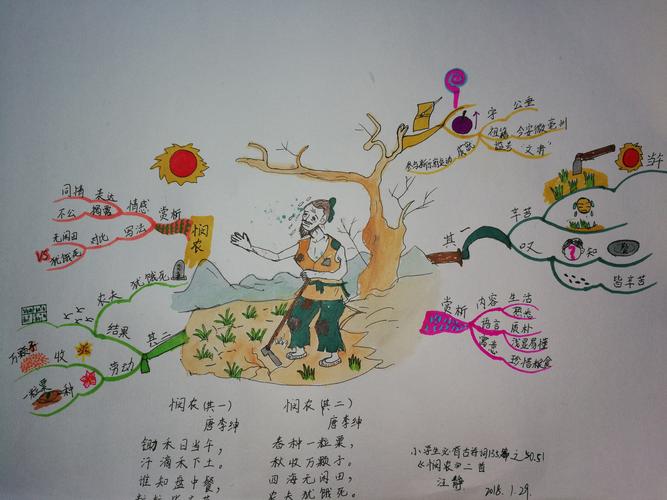 字 公垂
祖籍 今安徽亳州
参与新乐府运动 成就
谥号 "文肃"
同情 表达
不公 揭露 情感
赏析
无闲田 对比 写法
VS 犹饿死
悯农
犹饿死
农夫
结果
其二
万颗子 收
劳动
一粒粟 种
其一
辛苦
当午
叹
知
?
皆辛苦
赏析 内容 生活
语言 质朴
浅显易懂
寓意 珍惜粮食
悯农(其一)
唐李绅
锄禾日当午,
汗滴禾下土。
谁知盘中餐,
悯农(其二)
唐李绅
春种一粒粟,
秋收万颗子。
四海无闲田,
农夫犹饿死。
小学生必背古诗词135篇之50.51
《悯农》二首
汪静
2018.1.29.